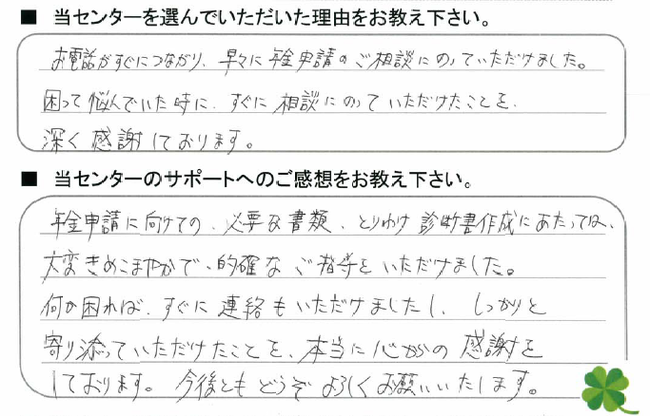 ■ 当センターを選んでいただいた理由をお教え下さい。
お電話がすぐにつながり、早々に年金申請のご相談にのっていただけました。
困って悩んでいた時に、すぐに相談にのっていただけたことを、
深く感謝しております。
■ 当センターのサポートへのご感想をお教え下さい。
年金申請に向けての、必要な書類、とりわけ診断書作成にあたっては、
大変きめこまやかで、的確なご指導をいただけました。
何か困れば、すぐに連絡もいただけましたし、しっかりと
寄り添っていただけたことを、本当に心からの感謝を
しております。今後ともどうぞよろしくお願いいたします。